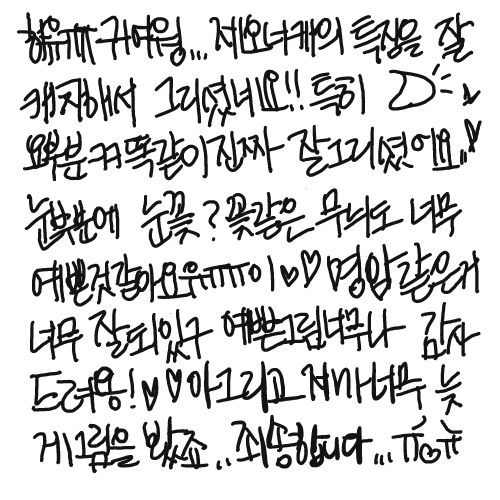 학유ㅠㅠ 귀여웡... 제오너캐의 특징을 잘
캐치해서 그리셨네요!! 특히
요부분ㅋㅋ똑같이진짜 잘그리셨어요..♥
눈부분에 눈꽃? 꽃같은 무늬도 너무
예쁜것같아요유ㅠㅠㅠㅣ♥♡ 명암같은거
너무 잘되있구 예쁜그림너무나 감사
드려용!♥♥아그리고 제가너무 늦
게그림을 봤죠.. 죄송합니다...ㅠㅇㅠ